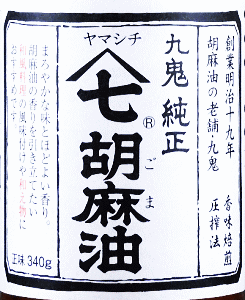 ヤマシチ
創業明治十九年
胡麻油の老舗九鬼
香味焙煎
圧搾法
九鬼純正
七胡麻油
®
ごま
まろやかな味とほどよい香り。
胡麻油の香りを引き立てたい
和風料理の風味付けや和え物に
おすすめです。
正味 340g